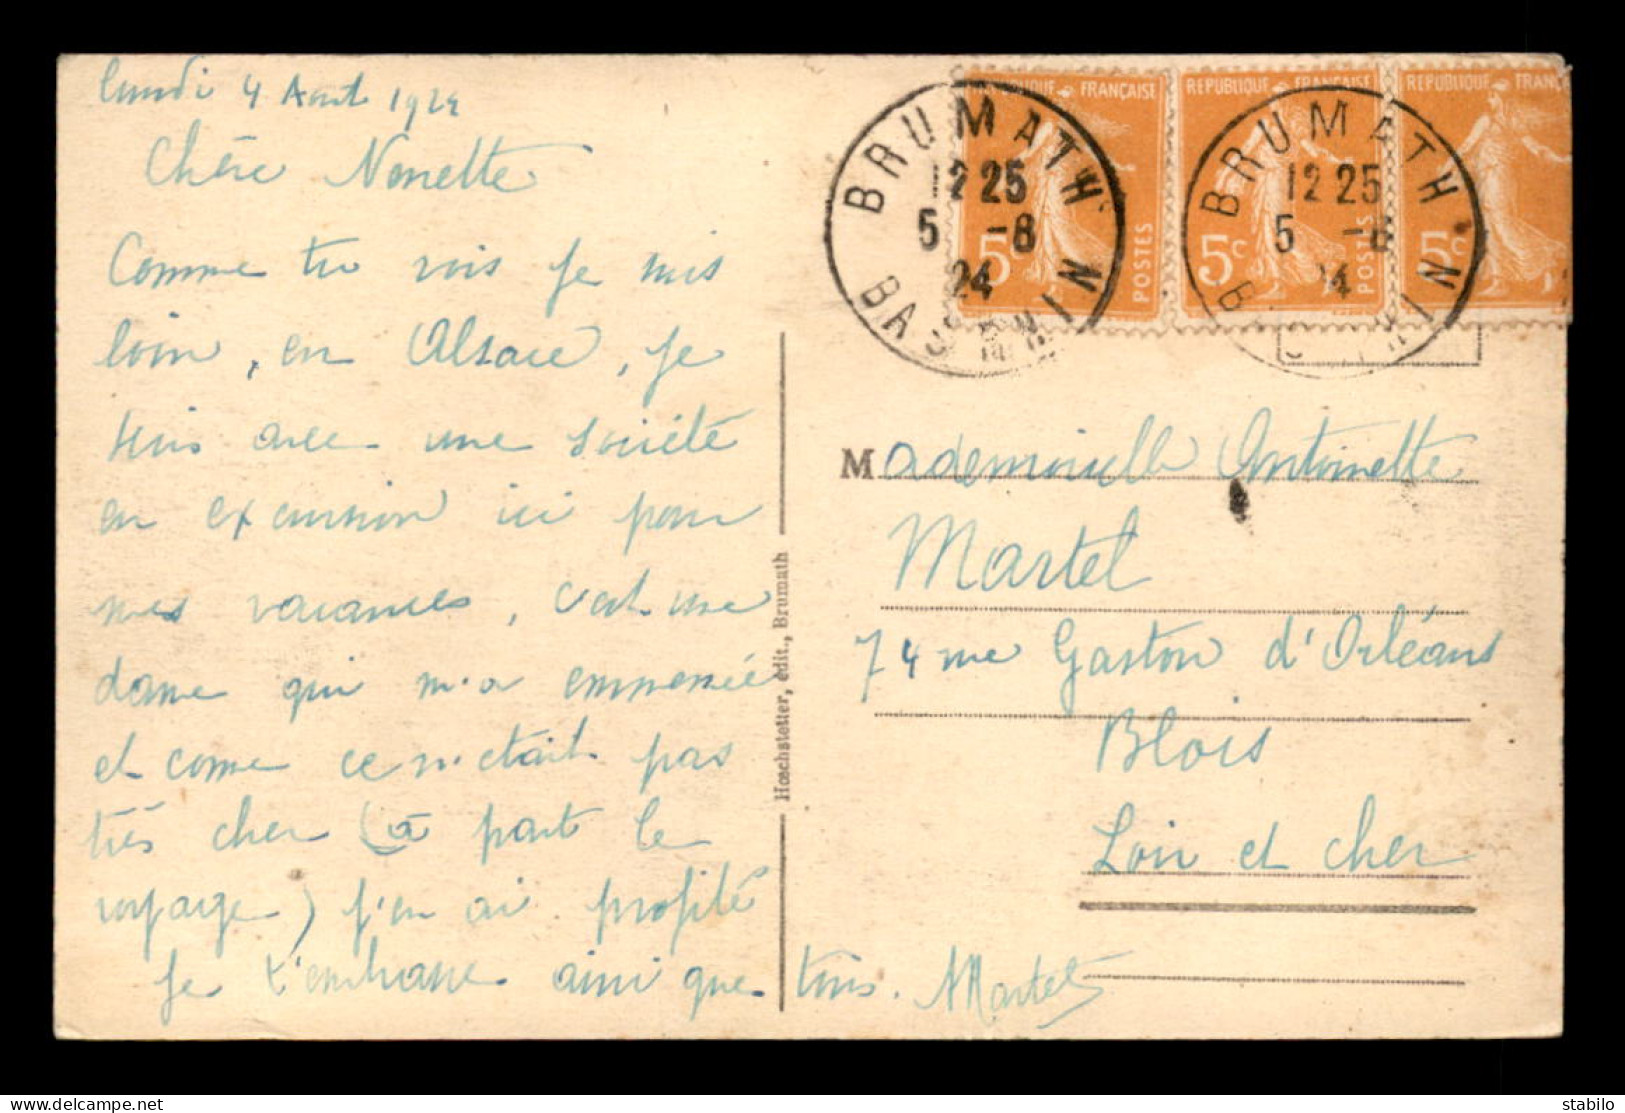 lundi 4 Aout 1924
Chère Nenette
Comme tu vois je suis
loin, en Alsace, je
suis avec une société
en excursion ici pour
mes vacances, c'est une
dame qui m'a emmenée
et come ce n'etait pas
très cher (à part le
voyage) j'en ai profité
Je t'embrasse ainsi que tous. Martel
Hœchstetter, édit., Brumath
RÉPUBLIQUE FRANÇAISE
5c
POSTES
RÉPUBLIQUE FRANÇAISE
5c
POSTES
RÉPUBLIQUE FRAN
5c
BRUMATH
12 25
5 -8
24
BAS RHIN
BRUMATH
12 25
5 -8
4
B RHIN
Mademoiselle Antoinette
Martel
74 rue Gaston d'Orléans
Blois
Loir et cher
stabilo
www.delcampe.net